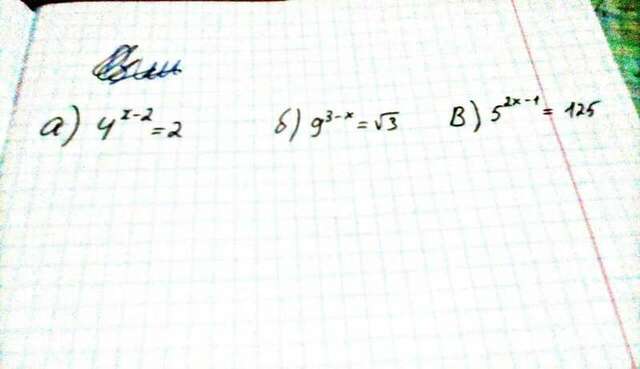 а) 4^{x-2} = 2 б) 9^{3-x} = √3 в) 5^{2x-1} = 125